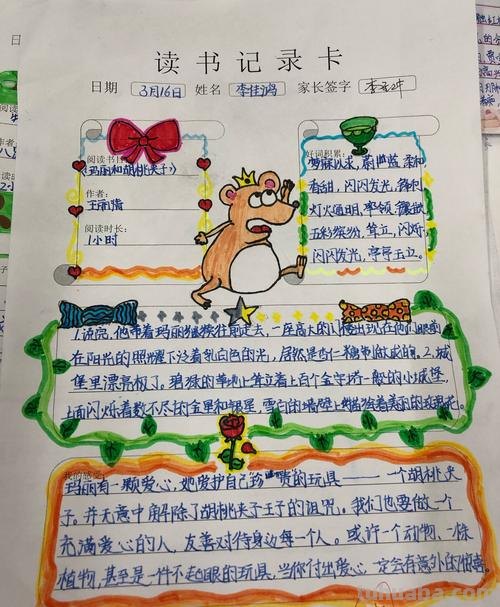 读书记录卡
日期 3月16日 姓名 李佳鸿 家长签字
阅读书目:
《玛丽和胡桃夹子》
作者:
王丽指
阅读时长:
1小时
好词积累:
梦寐以求,蔚蓝,柔和
香甜,闪闪发光,
灯火通明,率领,
五彩缤纷,耸立,闪烁
闪闪发光,亭亭玉立。
1.说完,他带着玛丽继续往前走去,一座高大的门楼出现在他们眼前
在阳光的照耀下泛着乳白色的光,居然是杏仁糖制做成的。2.城
堡里漂亮极了。碧绿的草地上耸立着上百个金字塔一般的小城堡,
上面闪烁着数不尽的金星和银星,雪白的墙壁上描绘着美丽的玫瑰花。
我的感受:
玛丽有一颗爱心,她爱护自己珍贵的玩具——一个胡桃夹
子。并无意中解除了胡桃夹子王子的诅咒。我们也要做一个
充满爱心的人,友善对待身边每一个人。或许一个动物、一株
植物,甚至是一件不起眼的玩具,当你付出爱心,一定会有意外的惊喜。
tuhuapa.com